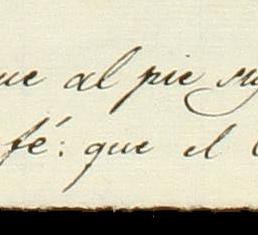 ue al pie
fé: que el